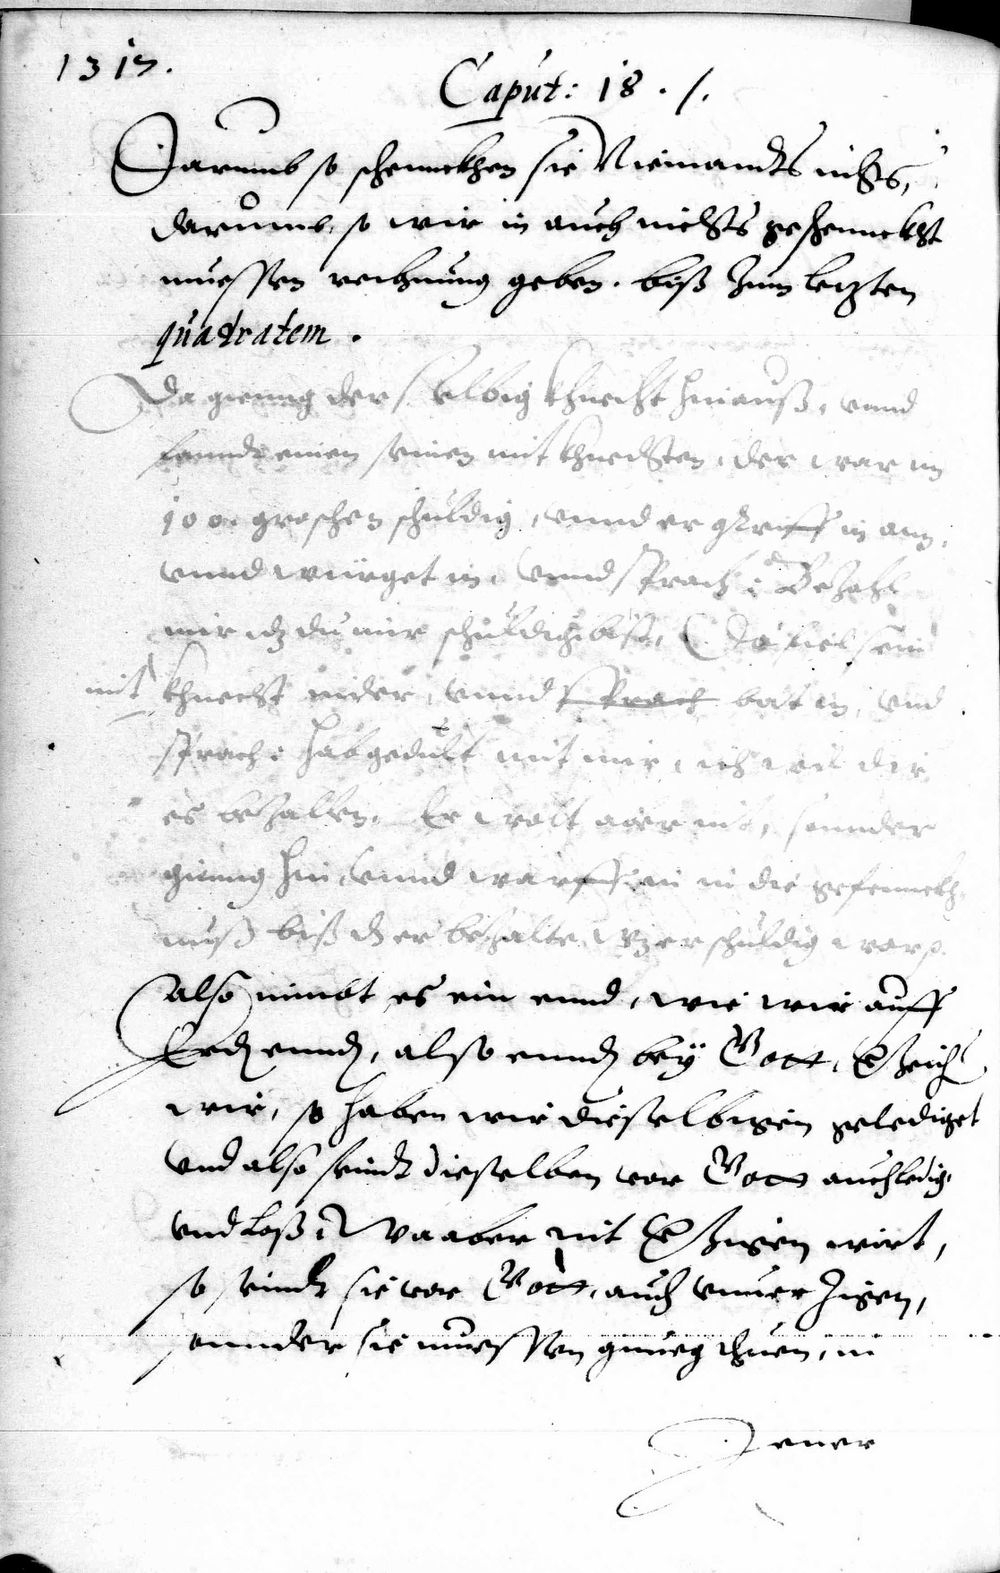 1317.
Caput: 18 . /.
Darumb so schenncken sie Niemandts nichts,
darumb, so wir in auch nichts geschennckht
muessen rechnung geben. biß zum letzten
quadratem .
Da gienng der selbig khnecht hinauß, vnnd
fanndt einen seinen mit khnechten, der war im
100. groschen schuldig, vnnd er griff in an,
vnnd würget in, vnnd sprach: Bezahl
mir dz du mir schuldig bist, Da fiel sein
mit khnecht nider, vnnd sprach bat in, vnd
sprach: hab gedult mit mir, ich wil dir
es bezallen. Er wolt aber nit, sonnder
gienng hin, vnnd warff in in die gefennckh-
nuß biß dz er bezalte, wz er schuldig war.
also nimbt es ein ennd, wie wir auff
Erd ennd, also ennd bey Gott,
wir, so haben wir dieselbigen gelediget
vnd also seindt dieselben vor Gott auch ledig,
vnd loß, Wa aber nit verzigen wirt,
so seindt sie vor Gott, auch vnuerzigen,
sonnder sie muessen gnueg thuen, in
Jener